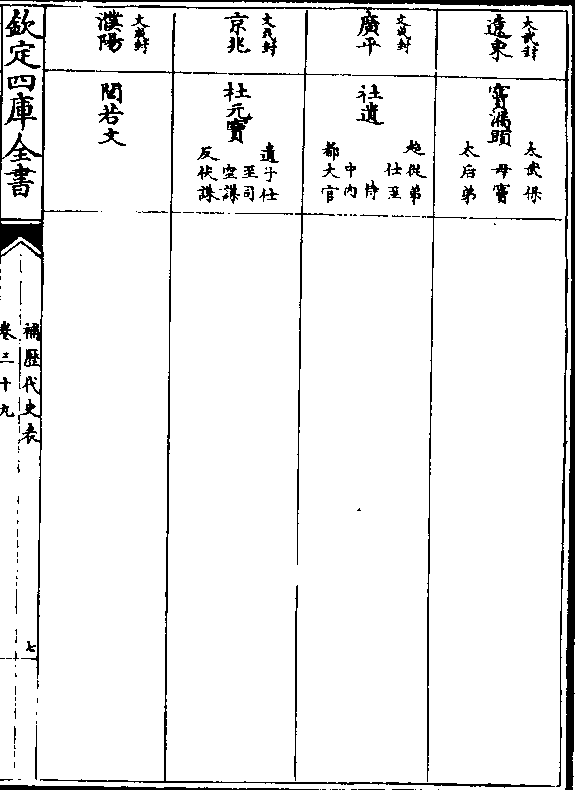 遼東
太武封
竇漏頭
太武保
母竇
太后弟
廣平
文成封
杜遺
超從弟
仕至
侍
中內
都大官
京兆
文成封
杜元寶
遺子仕
至司
空謀
反伏誅
濮陽
文成封
閭若文
欽定四庫全書
補歷代史表
卷三十九
七